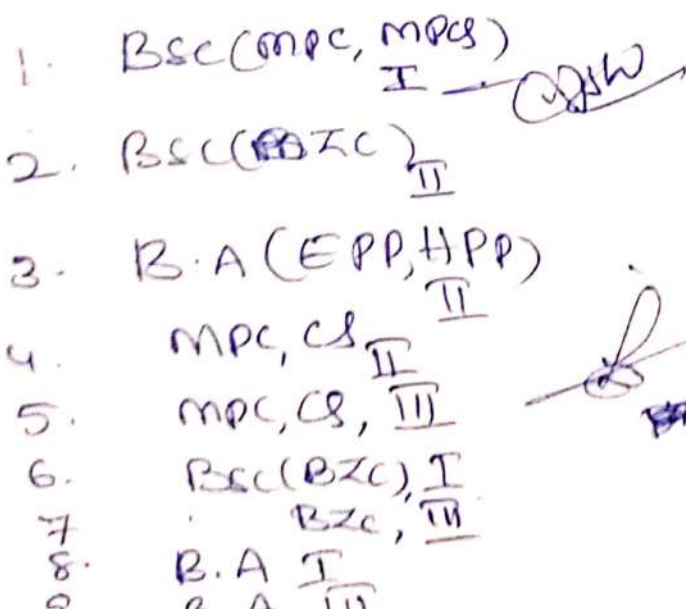 1. BSC(MPC, MPCS) I
2. BSC(BZC) II
3. B.A (EPP, HPP) II
4. MPC, CS II
5. MPC, CS, III
6. BSC(BZC), I
7 BZC, III
8. B.A I
9 B.A III